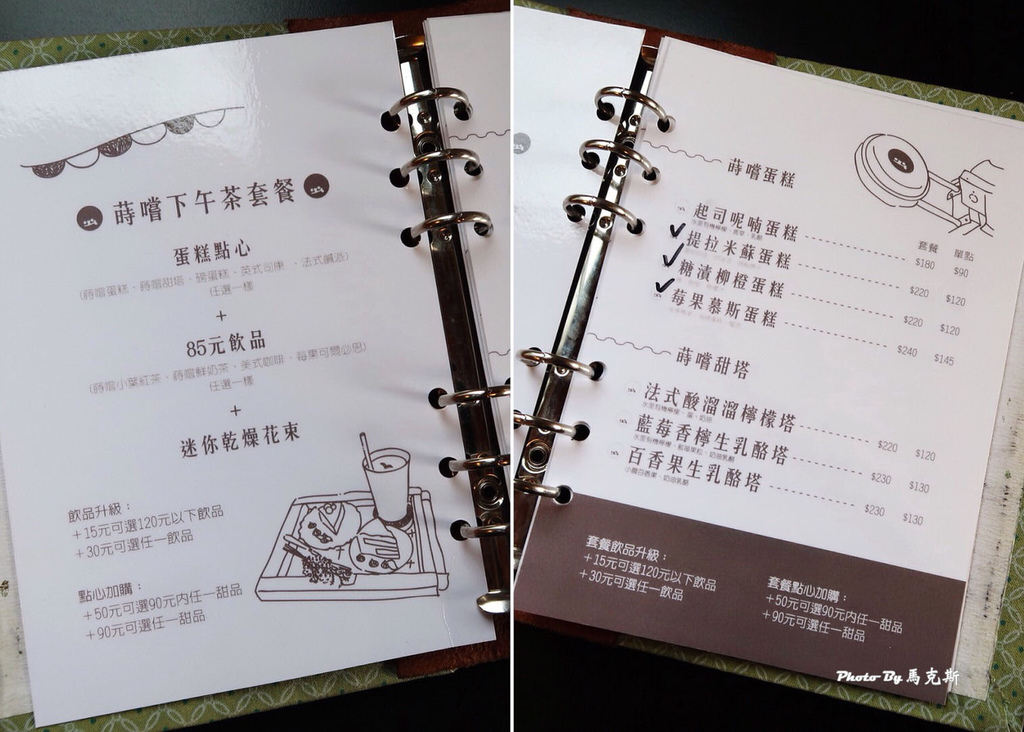 蒔嚐下午茶套餐
蛋糕點心
(蒔嚐蛋糕、蒔嚐甜塔、磅蛋糕、英式司康、法式鹹派)
任選一樣
+
85元飲品
(蒔嚐小葉紅茶、蒔嚐鮮奶茶、美式咖啡、每果可爾必思)
任選一樣
+
迷你乾燥花束
飲品升級：
+15元可選120元以下飲品
+30元可選任一飲品
點心加購：
+50元可選90元內任一甜品
+90元可選任一甜品
蒔嚐蛋糕
套餐 單點
起司呢喃蛋糕 $180 $90
提拉米蘇蛋糕 $220 $120
糖漬柳橙蛋糕 $220 $120
莓果慕斯蛋糕 $240 $145
蒔嚐甜塔
法式酸溜溜檸檬塔 $220 $120
水里有機檸檬、蛋、奶油
藍莓香檸生乳酪塔 $230 $130
百香果生乳酪塔 $230 $130
套餐飲品升級：
+15元可選120元以下飲品
+30元可選任一飲品
套餐點心加購：
+50元可選90元內任一甜品
+90元可選任一甜品
Photo By 馬克斯